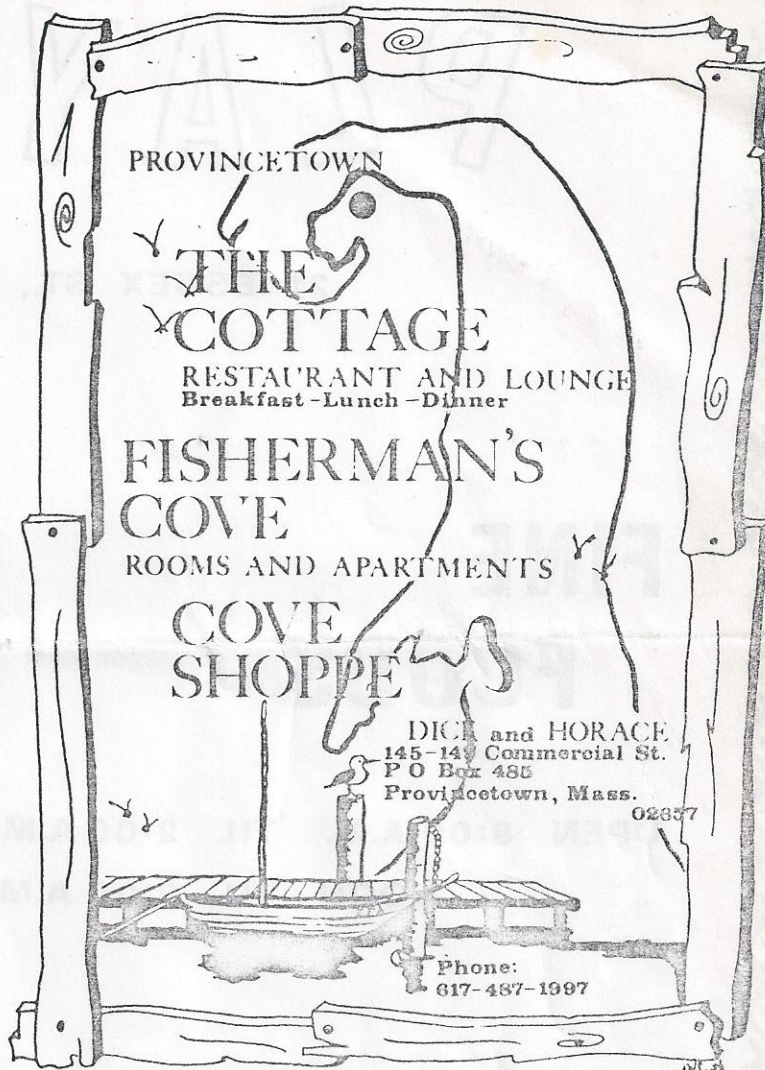 PROVINCETOWN
THE
COTTAGE
RESTAURANT AND LOUNGE
Breakfast-Lunch-Dinner
FISHERMAN'S
COVE
ROOMS AND APARTMENTS
COVE
SHOPPE
DICK and HORACE
145-149 Commercial St.
P O Box 485
Provincetown, Mass.
02657
Phone:
617-487-1997